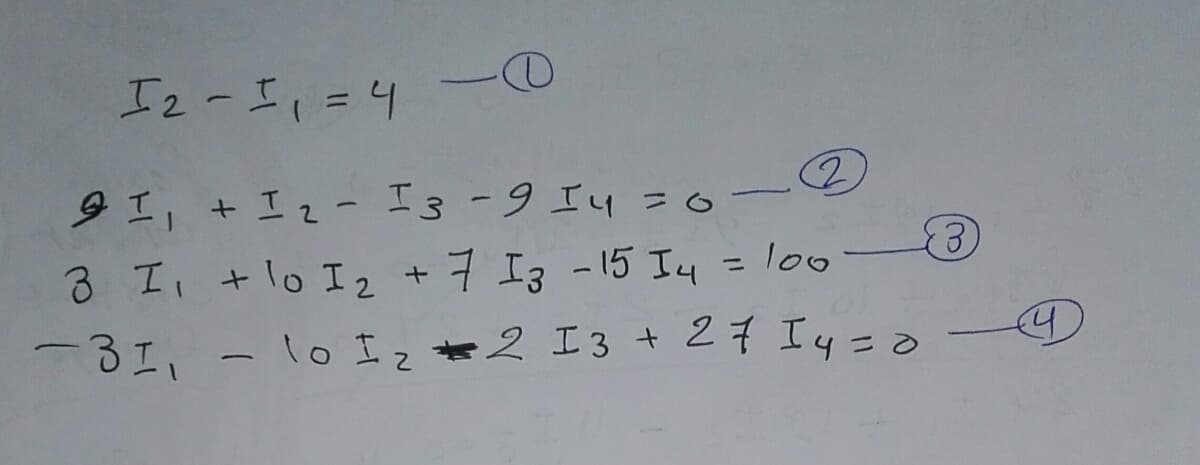 I₂ - I₁ = 4 — ①
9 I₁ + I₂ - I₃ - 9 I₄ = 0 — ②
3 I₁ + 10 I₂ + 7 I₃ - 15 I₄ = 100 — ③
-3 I₁ - 10 I₂ - 2 I₃ + 27 I₄ = 0 — ④